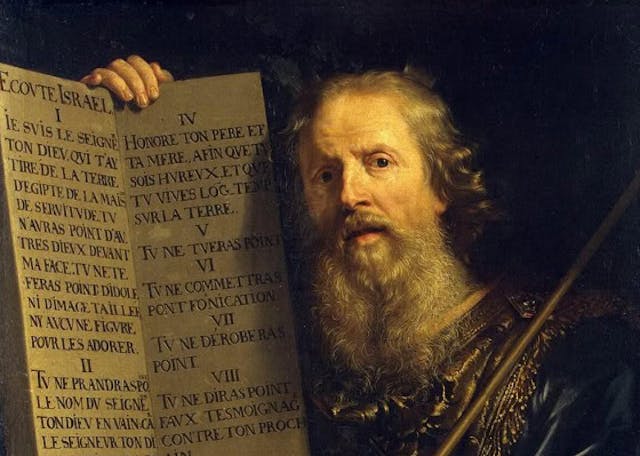 ECOVTE ISRAEL.
I
IE SVIS LE SEIGNE
TON DIEV, QVI T'AY
TIRE DE LA TERRE
D'EGIPTE DE LA MAIS
DE SERVITVDE. TV
N'AVRAS POINT D'AV
TRES DIEVX DEVANT
MA FACE. TV NE TE
FERAS POINT D'IDOLE
NI D'IMAGE TAILLEE
NY AVCVNE FIGVRE
POVR LES ADORER.
II
TV NE PRANDRAS PO
LE NOM DV SEIGNE
TON DIEV EN VAIN. CA
LE SEIGNEVR TON DI
IV
HONORE TON PERE ET
TA MERE, AFIN QVE TV
SOIS HVREVX, ET QVE
TV VIVES LÕG TEMP
SVR LA TERRE.
V
TV NE TVERAS POINT
VI
TV NE COMMETTRAS
PONT FONICATION
VII
TV NE DEROBERAS
POINT.
VIII
TV NE DIRAS POINT
FAVX TESMOIGNAG
CONTRE TON PROCH